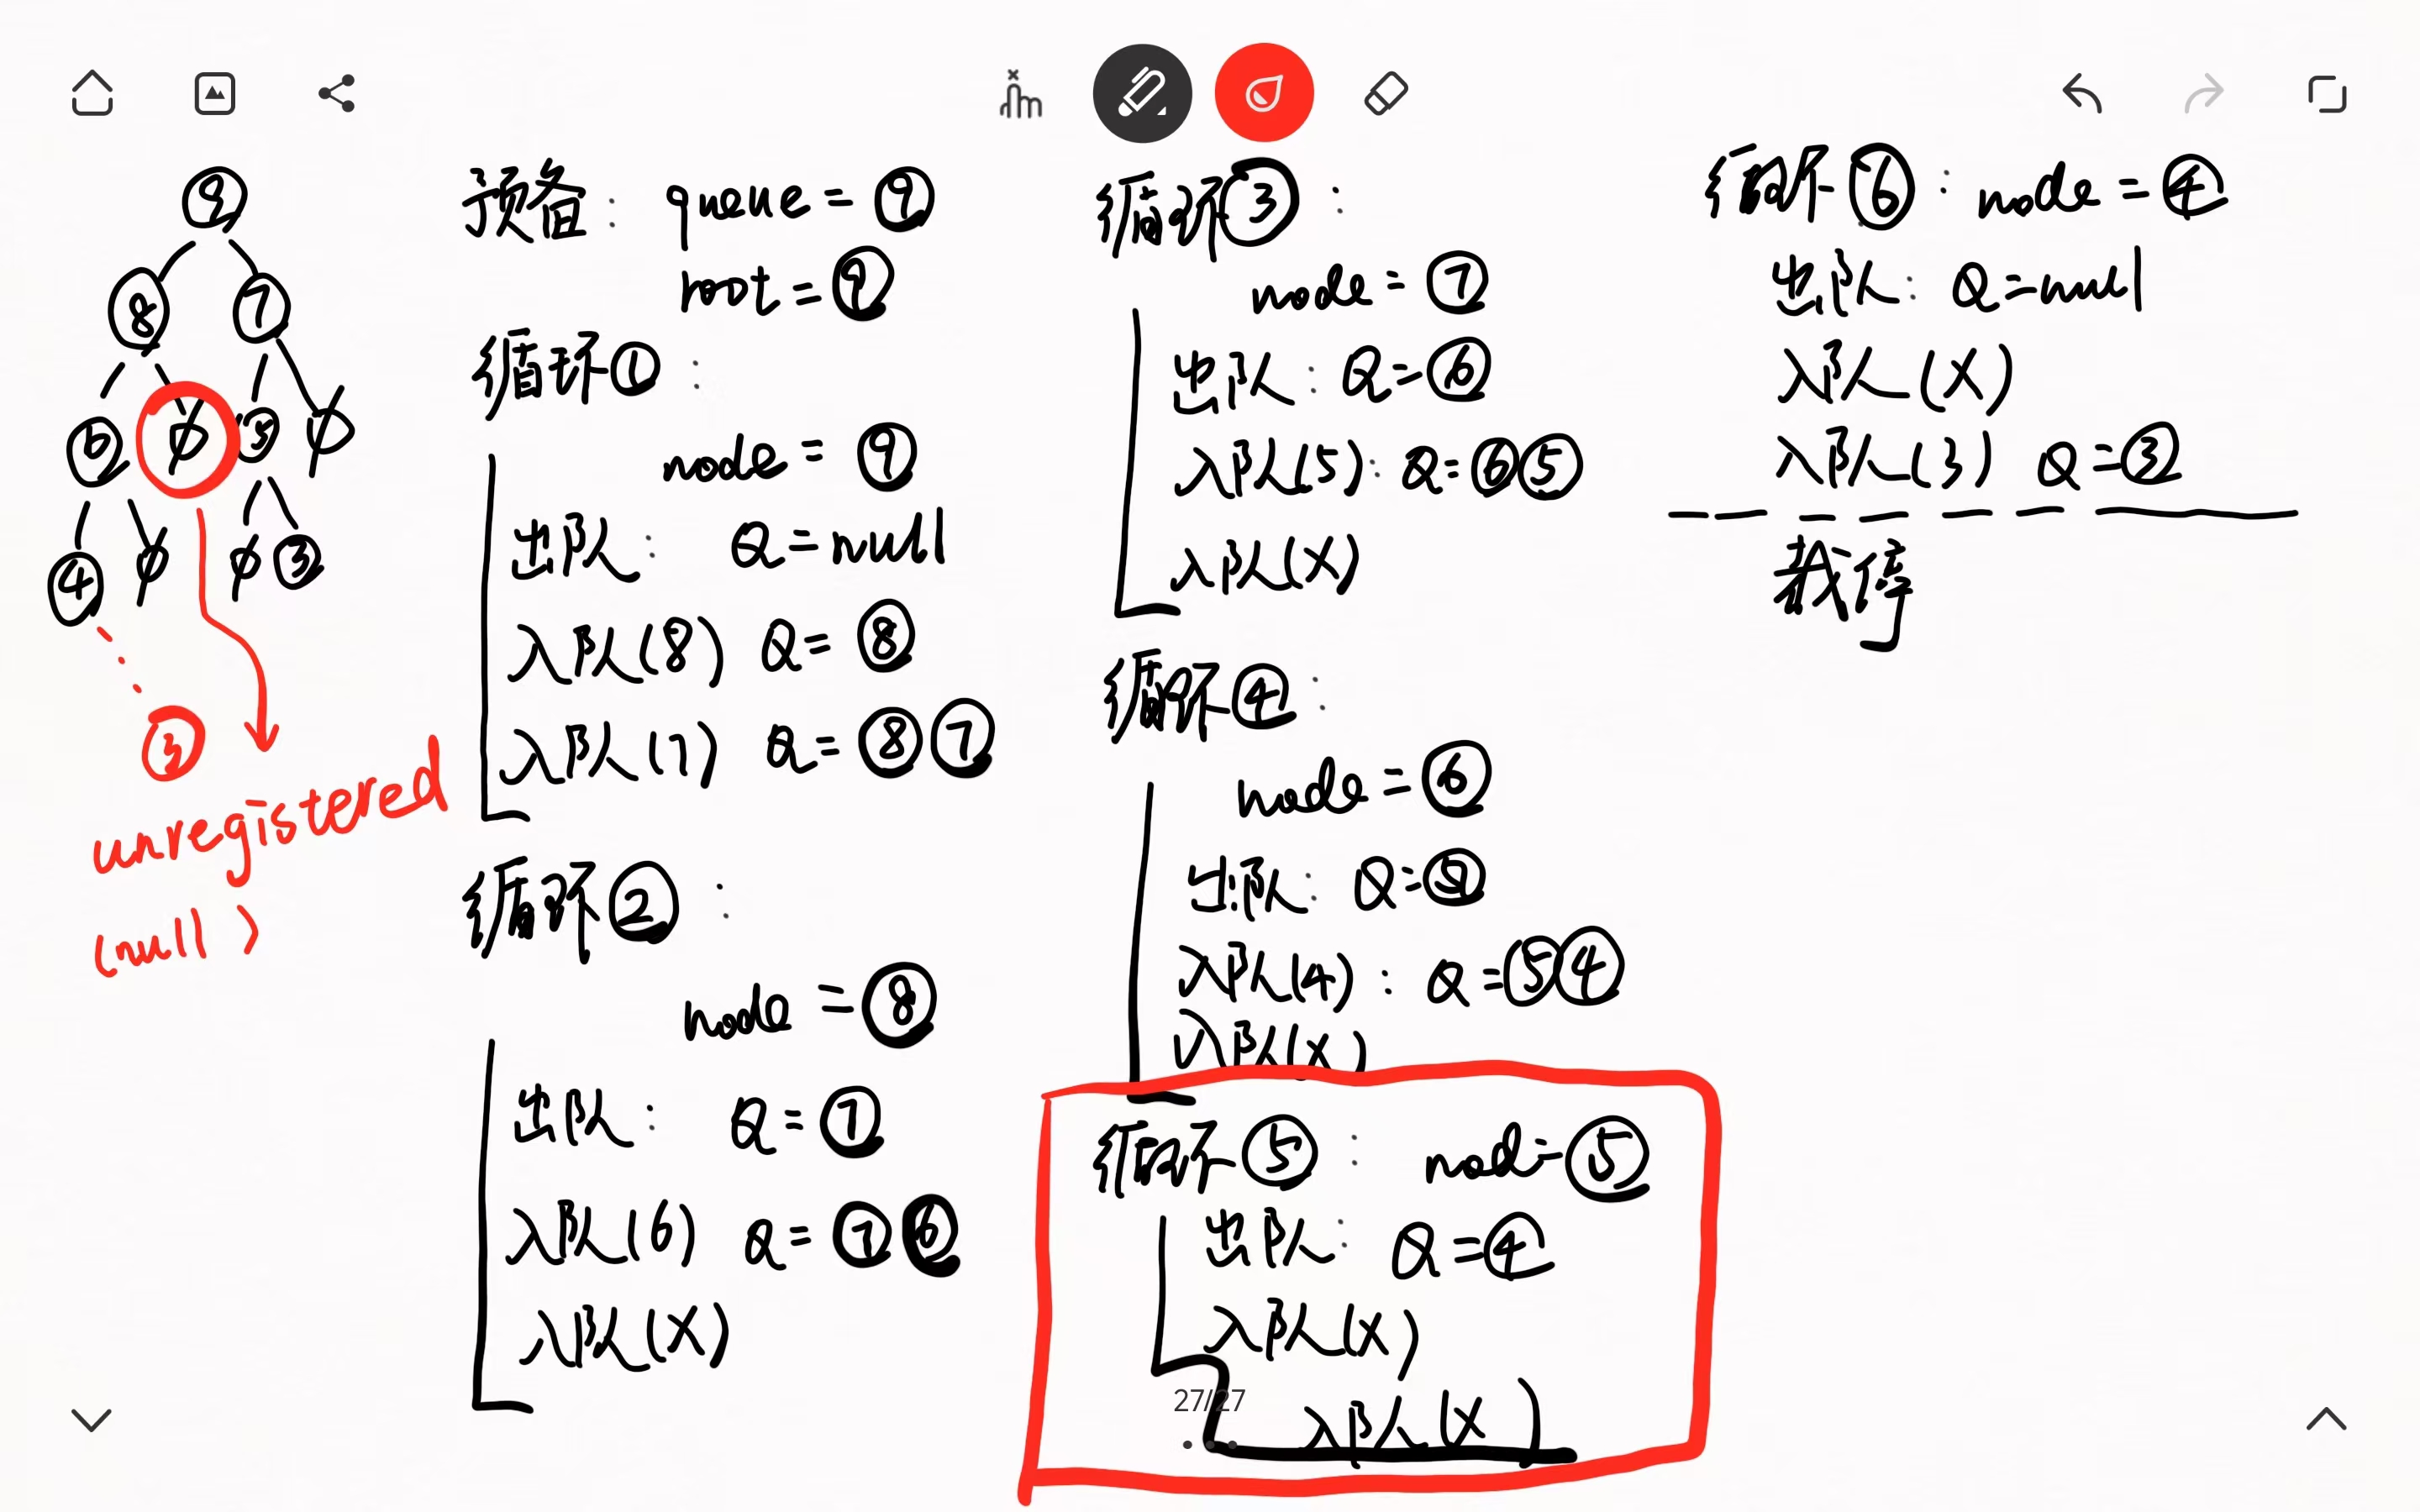 9
8 7
6 ∅ 5 ∅
4 ∅ ∅ 3
3
unregistered
(null)
预备: queue = ⑨
root = ⑨
循环①:
node = ⑨
出队: Q = null
入队(8) Q = ⑧
入队(7) Q = ⑧⑦
循环②:
node = ⑧
出队: Q = ⑦
入队(6) Q = ⑦⑥
入队(X)
循环③:
node = ⑦
出队: Q = ⑥
入队(5): Q = ⑥⑤
入队(X)
循环④:
node = ⑥
出队: Q = ⑤
入队(4): Q = ⑤④
入队(X)
循环⑤: nod = ⑤
出队: Q = ④
入队(X)
入队(X)
27/27
循环⑥: node = ④
出队: Q = null
入队(X)
入队(3) Q = ③
裁停